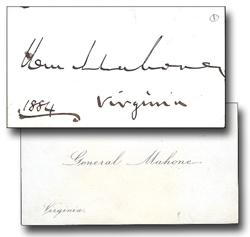 Wm Mahone
1884 Virginia
General Mahone
Virginia.